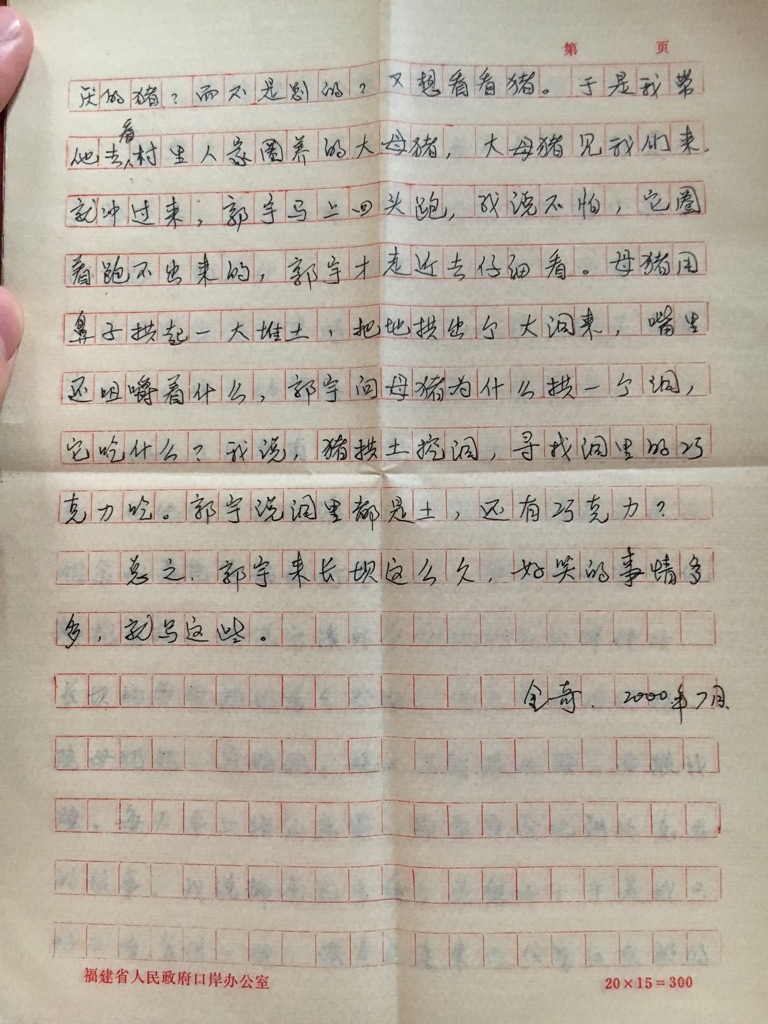 第 页
厌的猪？而不是别的？又想看看猪。于是我带
他去看村里人家圈养的大母猪，大母猪见我们来，
就冲过来，郭宇马上回头跑，我说不怕，它圈
着跑不出来的，郭宇才走近去仔细看。母猪用
鼻子拱起一大堆土，把地拱出个大洞来，嘴里
还咀嚼着什么，郭宇问母猪为什么拱一个洞，
它吃什么？我说，猪拱土挖洞，寻找洞里的巧
克力吃。郭宇说洞里都是土，还有巧克力？
总之，郭宇来长坝这么久，好笑的事情多
多，就写这些。
全奇．2000年7月
福建省人民政府口岸办公室
20×15=300